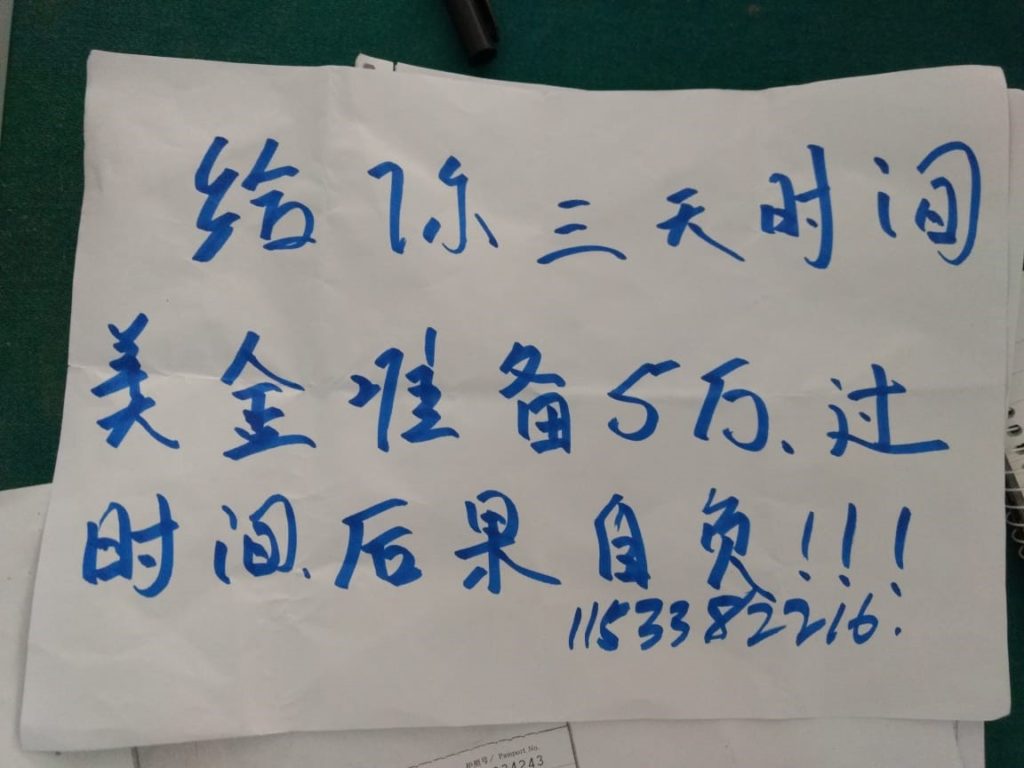 给你三天时间
美金准备5万、过
时间、后果自负!!!
1153382216.
护照号/ Passport No.